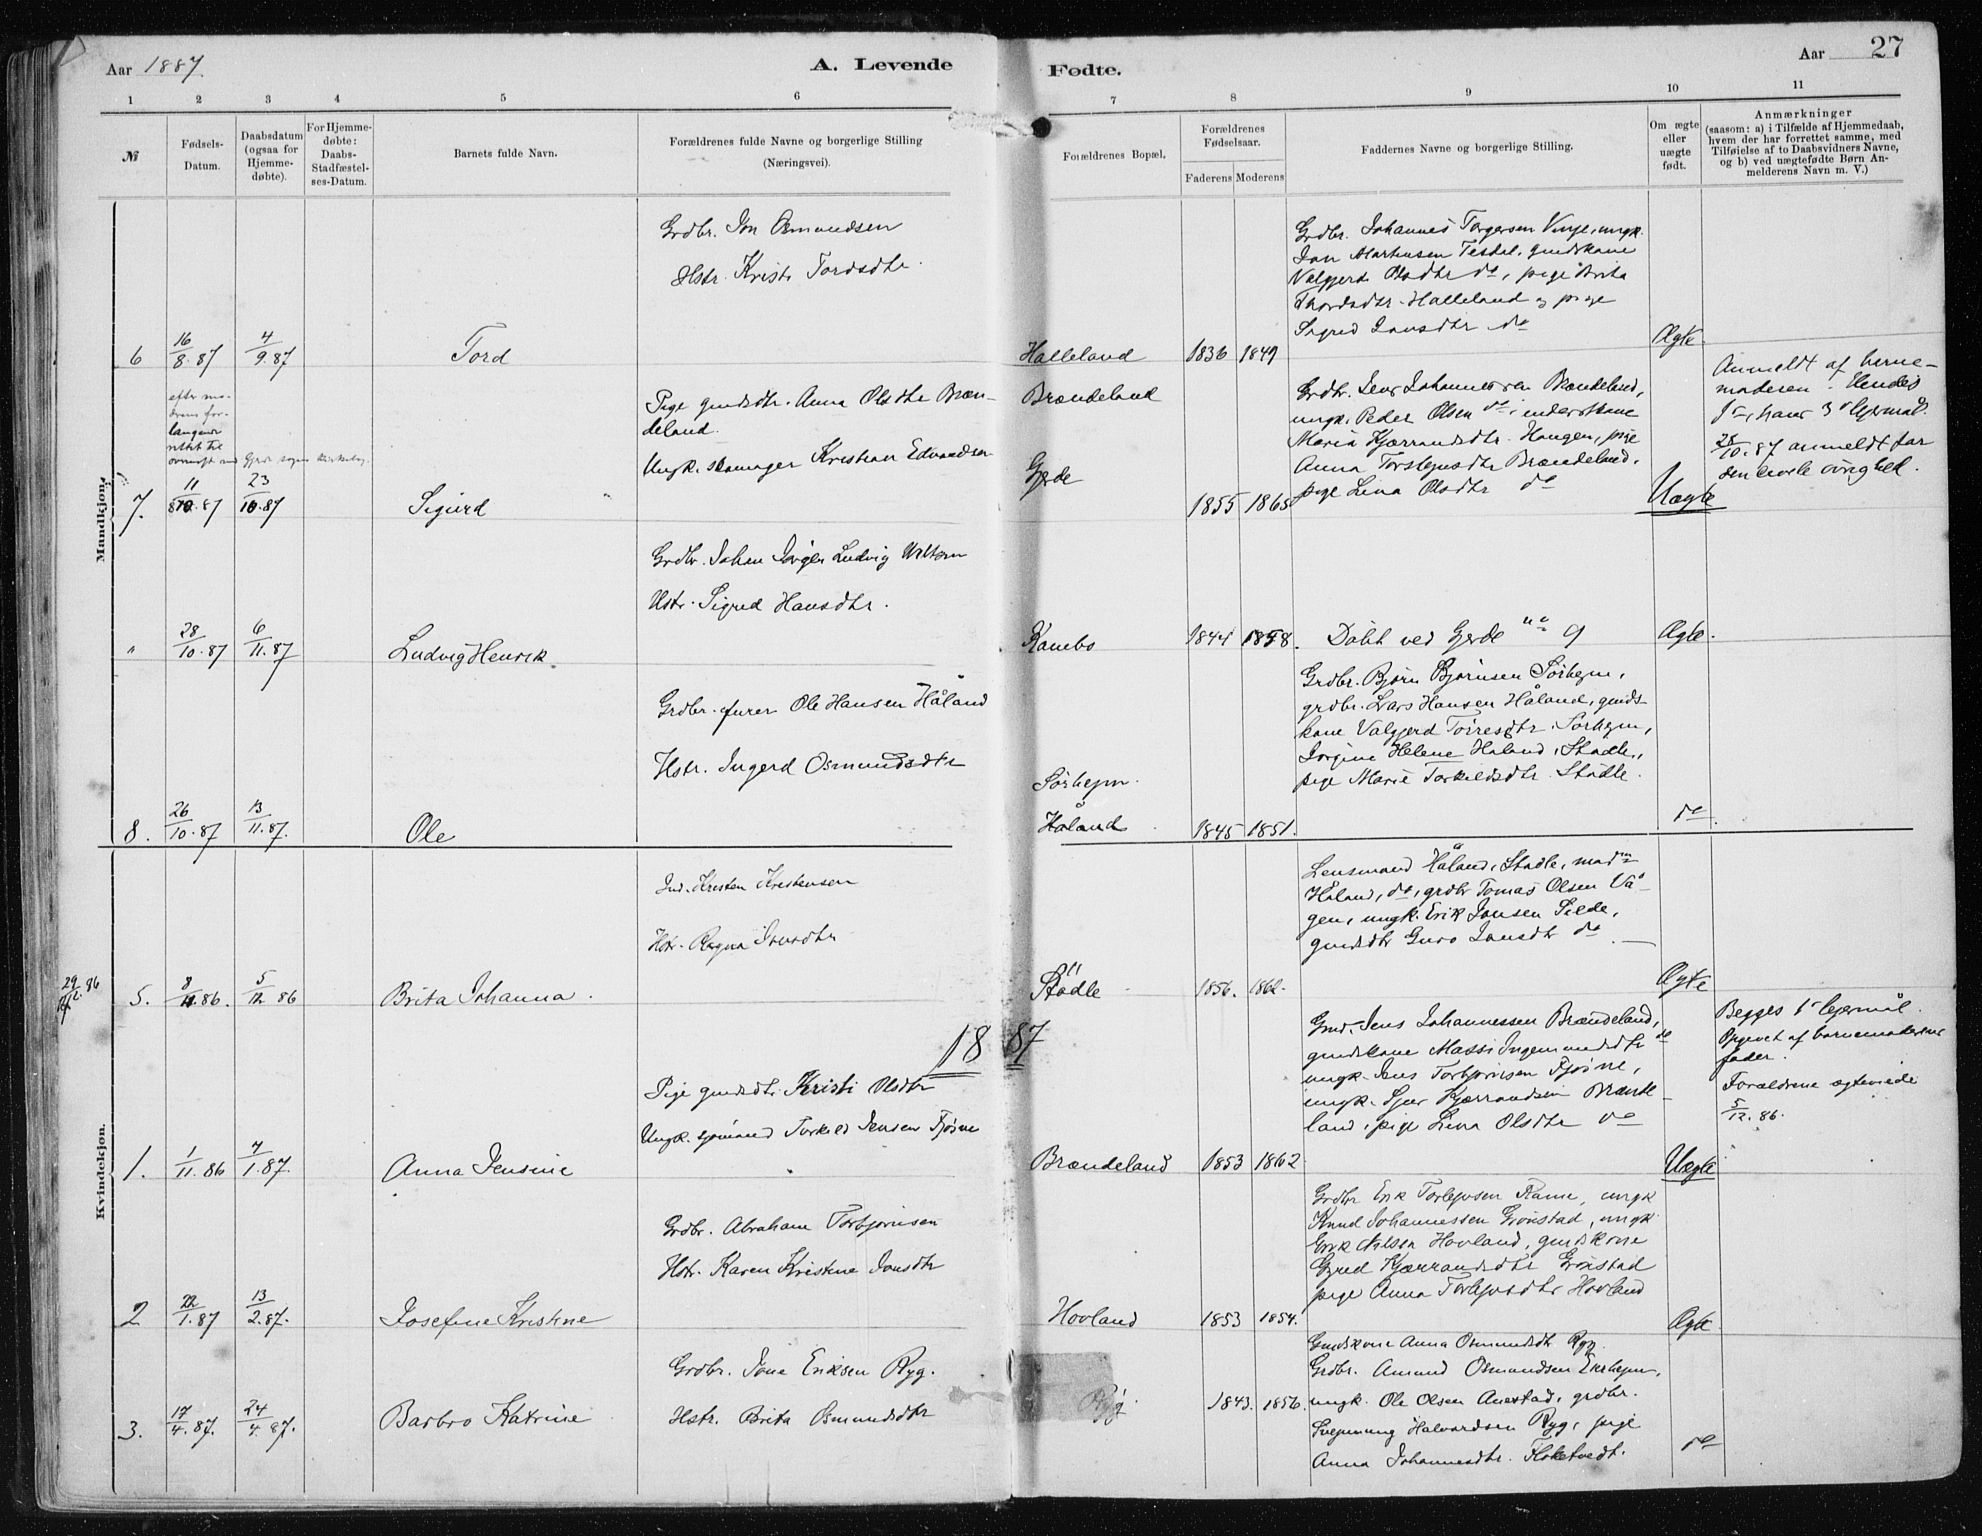 Aar 1887.
A. Levende
Fødte.
Aar
27
1 2 3 4 5 6 7 8 9 10 11
№
Fødsels-
Datum.
Daabsdatum
(ogsaa for
Hjemme-
døbte).
For Hjemme-
døbte:
Daabs-
Stadfæstel-
ses-Datum.
Barnets fulde Navn.
Forældrenes fulde Navne og borgerlige Stilling
(Næringsvei).
Forældrenes Bopæl.
Forældrenes
Fødselsaar.
Faderens Moderens
Faddernes Navne og borgerlige Stilling.
Om ægte
eller
uægte
født.
Anmærkninger
(saasom: a) i Tilfælde af Hjemmedaab,
hvem der har forrettet samme, med
Tilføielse af to Daabsvidners Navne,
og b) ved uægtefødte Børn An-
melderens Navn m. V.)
Mandkjøn.
6
16/8.87
4/9.87
Tord
Grdbr. Jon Osmundsen
Hstr. Kristi Tordsdtr.
Halleland
1836 1849
Grdbr. Johannes Torgersen Vinje, ungk.
Jon Martinsen Tesdal, gmdskone
Valgjerd Olsdtr do, pige Brita
Thordsdtr. Halleland og pige
Sigrid Jonsdtr do
Ægte
efter mo-
drens for-
langende
rettet til
7.
11/10.87
23/10.87
Sigurd
Pige gmdsdtr. Anna Olsdtr Bræn-
deland.
Ungk. skomager Kristian Edvardsen
Brændeland
Gjerde
1855 1865
Grdbr. Jens Johannessen Brændeland,
ungk. Peder Olsen do, inderstkone
Maria Kjærrandsdtr. Haugen, pige
Anna Torsteinsdtr Brændeland,
pige Lina Olsdtr do
Uægte
Anmeldt af barne-
moderen. Hendes
1ste, hans 3die leiermål.
28/10.87 anmeldt for
den civile øvrighed.
"
28/10.87
6/11.87
Ludvig Henrik
Grdbr. Johan Jørgen Ludvig Wiltsen
Hstr. Sigrid Hansdtr.
Kambo
1844 1858.
Døbt ved Gjerde no 9
Ægte.
8.
26/10.87
13/11.87.
Ole
Grdbr. furer Ole Hansen Håland
Hstr. Ingerd Osmundsdtr
Sørhejm.
Håland
1845 1851.
Grdbr. Bjørn Bjørnsen Sørhejm,
grdbr. Lars Hansen Håland, gmds-
kone Valgjerd Torresdtr. Sørhejm,
Jorgine Helene Håland, Stødle,
pige Marie Torkildsdtr. Stødle.
do.
Kvindekjøn.
29/12.86
5.
8/11.86.
5/12 86
Brita Johanna.
Ind. Kristen Kristensen
Hstr. Ragna Jonsdtr
Stødle
1856. 1862.
Lensmand Håland, Stødle, madm
Håland, do, grdbr Tomas Olsen Vå-
gen, ungk. Erik Jonsen Silde,
gmdsdtr Guro Jonsdtr do.
Ægte
1887
1.
1/11.86
7/1.87
Anna Jensine
Pige gmdsdtr. Kristi Olsdtr
Ungk. sjømand Torkild Jensen Fjøsne
Brændeland
1853 1862
Gmd. Jens Johannessen Brændeland,
gmdskone Massi Ingemundsdtr do
ungk. Jens Torbjørnsen Fjøsne,
ungk. Sjur Kjærrandsen Brænde-
land, pige Lina Olsdtr do
Uægte
Begges 1ste leiermål.
Opgivet af barnemoderens
fader.
Forældrene ægteviede
5/12.86.
2
22/1.87
13/2.87.
Josefine Kristine
Grdbr. Abraham Torbjørnsen
Hstr. Karen Kristine Jonsdtr
Hovland
1853 1854.
Grdbr Erik Torleivsen Rame, ungk
Knud Johannessen Grønstad, ungk.
Erik Nilsen Hovland, gmdskone
Gyrid Kjærrandsdtr Grønstad
pige Anna Torleivsdtr Hovland
Ægte.
3.
17/4.87.
24/4.87.
Barbro Katrine
Grdbr. Jone Eriksen Ryg.
Hstr. Brita Osmundsdtr
Ryg.
1843. 1856.
Gmdskone Anna Osmundsdtr Ryg.
Grdbr. Amund Osmundsen Ekrhejm,
ungk. Ole Olsen Auestad, grdbr.
Svejnung Halvardsen Ryg, pige
Anna Johannesdtr. Flaketvedt.
do